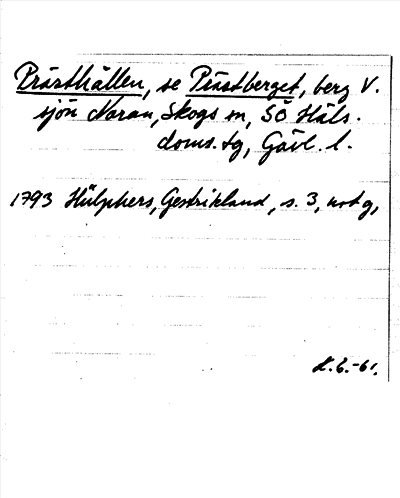 Prästhällen, se Prästberget, berg V.
sjön Naran, Skogs sn, SÖ Häls.
doms. tg, Gävl. l.
1793 Hülphers, Gestrikland, s. 3, not g,
-61.